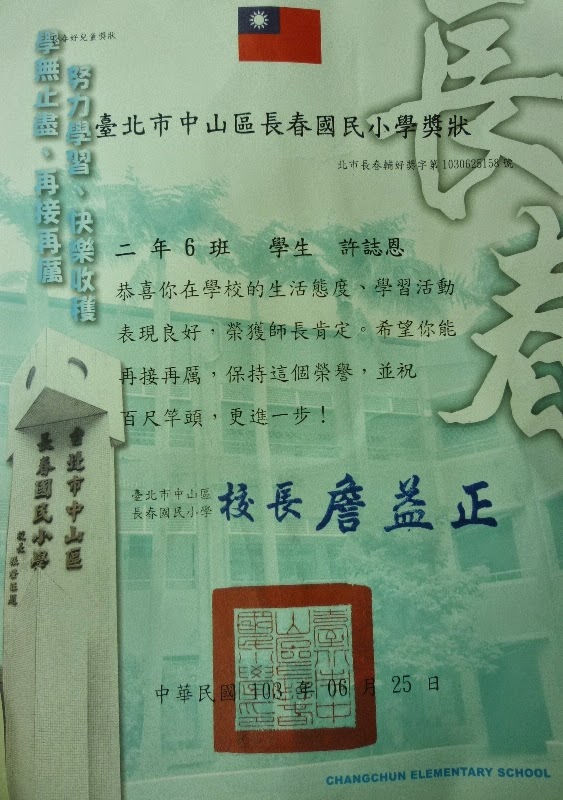 長春好兒童獎狀
努力學習、快樂收穫
學無止盡、再接再厲
臺北市中山區長春國民小學獎狀
北市長春輔好獎字第1030625158號
長春
二年6班 學生 許誌恩
恭喜你在學校的生活態度、學習活動
表現良好，榮獲師長肯定。希望你能
再接再厲，保持這個榮譽，並祝
百尺竿頭，更進一步！
台北市中山區
長春國民小學
臺北市中山區
長春國民小學
校長 詹益正
中華民國 103 年 06 月 25 日
CHANGCHUN ELEMENTARY SCHOOL